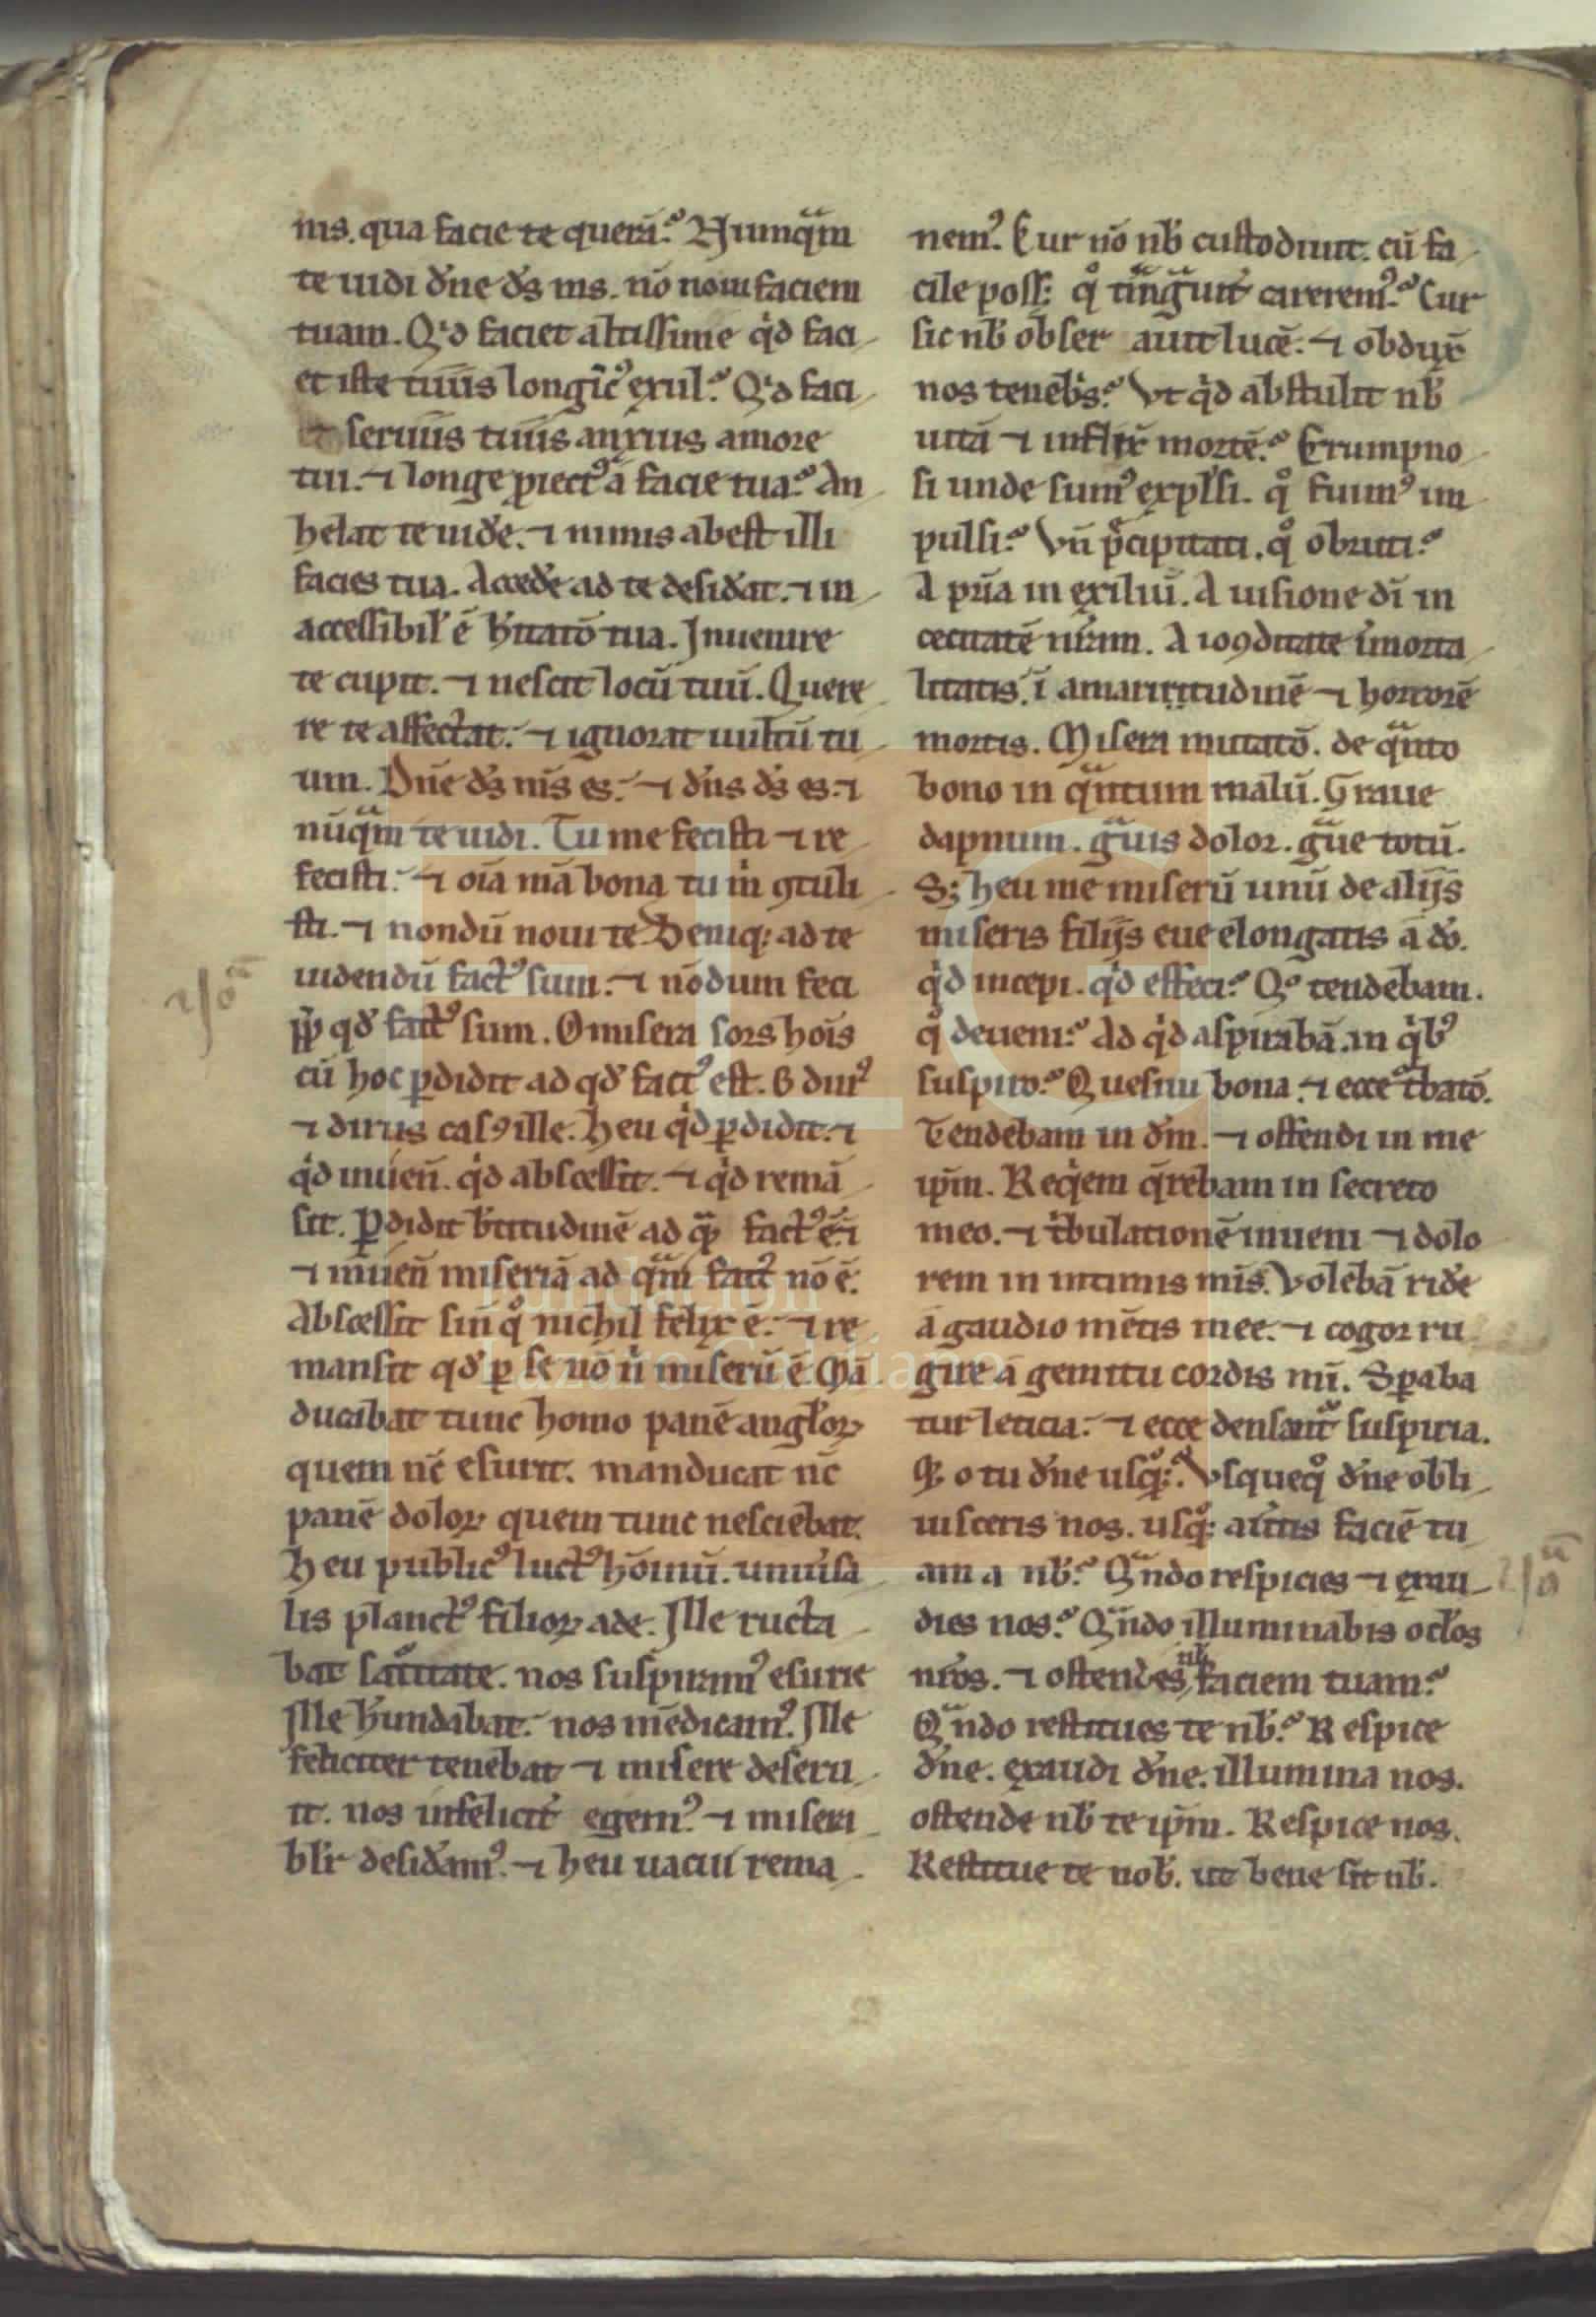 ms. qua facie te querā? Nunqͣm
te uidi dn̄e ds̄ ms. nō noui faciem
tuam. Qͥd faciet altissime qͥd faci-
et iste tuus longiꝰ exul? Qͥd faci-
et seruus tuus anxius amore
tui. ⁊ longe ꝓiectꝰ a facie tua? An-
helat te uide᷑. ⁊ nimis abest illi
facies tua. Accede᷑ ad te desid᷑at. ⁊ in-
accessibil' ē h'itatō tua. Inuenire
te cupit. ⁊ nescit locū tuū. Quere-
re te affectat. ⁊ ignorat uultū tu-
um. Dn̄e ds̄ ms̄ es. ⁊ dn̄s ds̄ es. ⁊
nūqͣm te uidi. Tu me fecisti ⁊ re-
fecisti. ⁊ oīa mā bona tu m̄ ꝯtuli-
sti. ⁊ nondū noui te. Deniqꝫ ad te
uidendū factꝰ sum. ⁊ nōdum feci
ꝓp̄ qd' factꝰ sum. O misera sors hoīs
cū hoc ꝑdidit ad qd' factꝰ est. O durꝰ
⁊ dirus casꝰ ille. Heu qͥd ꝑdidit. ⁊
qͥd inuen̄. qͥd abscessit. ⁊ qͥd remā-
sit. Ꝑdidit b'titudinē ad qͣm factꝰ ē. ⁊
⁊ inuen̄ miseriā ad qͣm factꝰ nō ē.
Abscessit sin̄ qͦ nichil felix ē. ⁊ re-
mansit qd' ꝑ se nō n̄ miserū ē. Mā-
ducabat tunc homo panē angl'oꝝ
quem nc̄ esurit. manducat nc̄
panē doloꝝ quem tunc nesciebat.
Heu publicꝰ luctꝰ hōinū. uniu'sa-
lis planctꝰ filioꝝ ade. Ille ructa-
bat sat'itate. nos suspiramꝰ esurie
Ille h'undabat. nos mēdicamꝰ. Ille
feliciter tenebat ⁊ misere deseru-
it. nos infelicit' egemꝰ. ⁊ miseri-
bl'r desid'amꝰ. ⁊ heu uacui rema-
nemꝰ. Cur nō nb' custodiuit. cū fa-
cile possꝫ qͦ tͣm gͣuit' careremꝰ? Cur
sic nb' obser auit lucē. ⁊ obdux̄
nos tenebͥs? Vt qͥd abstulit nb'
uitā ⁊ inflix̄ mortē? Erumpno-
si unde sumꝰ expl'si. qͦ fuimꝰ im-
pulsi? Vn̄ p̄cipitati. qͦ obruti?
A pr̄ia in exiliū. A uisione dī in
cecitatē nr̄am. A iocꝯditate īmorta-
litatis. ī amaritudinē ⁊ horrorē
mortis. Misera mutatō. de qͣnto
bono in qͣntum malū. Graue
dapnum. gͣuis dolor. gͣue totū.
Sꝫ heu me miserū unū de alijs
miseris filijs eue elongatis a dō.
qͥd incepi. qͥd effeci? Qͦ tendebam.
qͦ deueni? Ad qͥd aspirabā. in qͥbꝰ
suspiro? Quesiui bona. ⁊ ecce t'batō.
Tendebam in dm̄. ⁊ offendi in me
ip̄m. Reqͥem q̄rebam in secreto
meo. ⁊ tͥbulationē inueni ⁊ dolo-
rem in intimis mīs. Volebā ride᷑
a gaudio mētis mee. ⁊ cogor ru-
gire a gemitu cordis mī. Sꝑaba-
tur leticia. ⁊ ecce densant᷑ suspiria.
Et o tu dn̄e usqꝫ? Vsquequͦ dn̄e obli-
uisceris nos. usqꝫ au'tis faciē tu-
am a nb'? Qͣndo respicies ⁊ exau-
dies nos? Qͣndo illuminabis ocl'os
nr̄os. ⁊ ostendes nb' faciem tuam?
Qͣndo restitues te nb'? Respice
dn̄e. exaudi dn̄e. illumina nos.
ostende nb' te ip̄m. Respice nos.
Restitue te nob'. ut bene sit nb'.